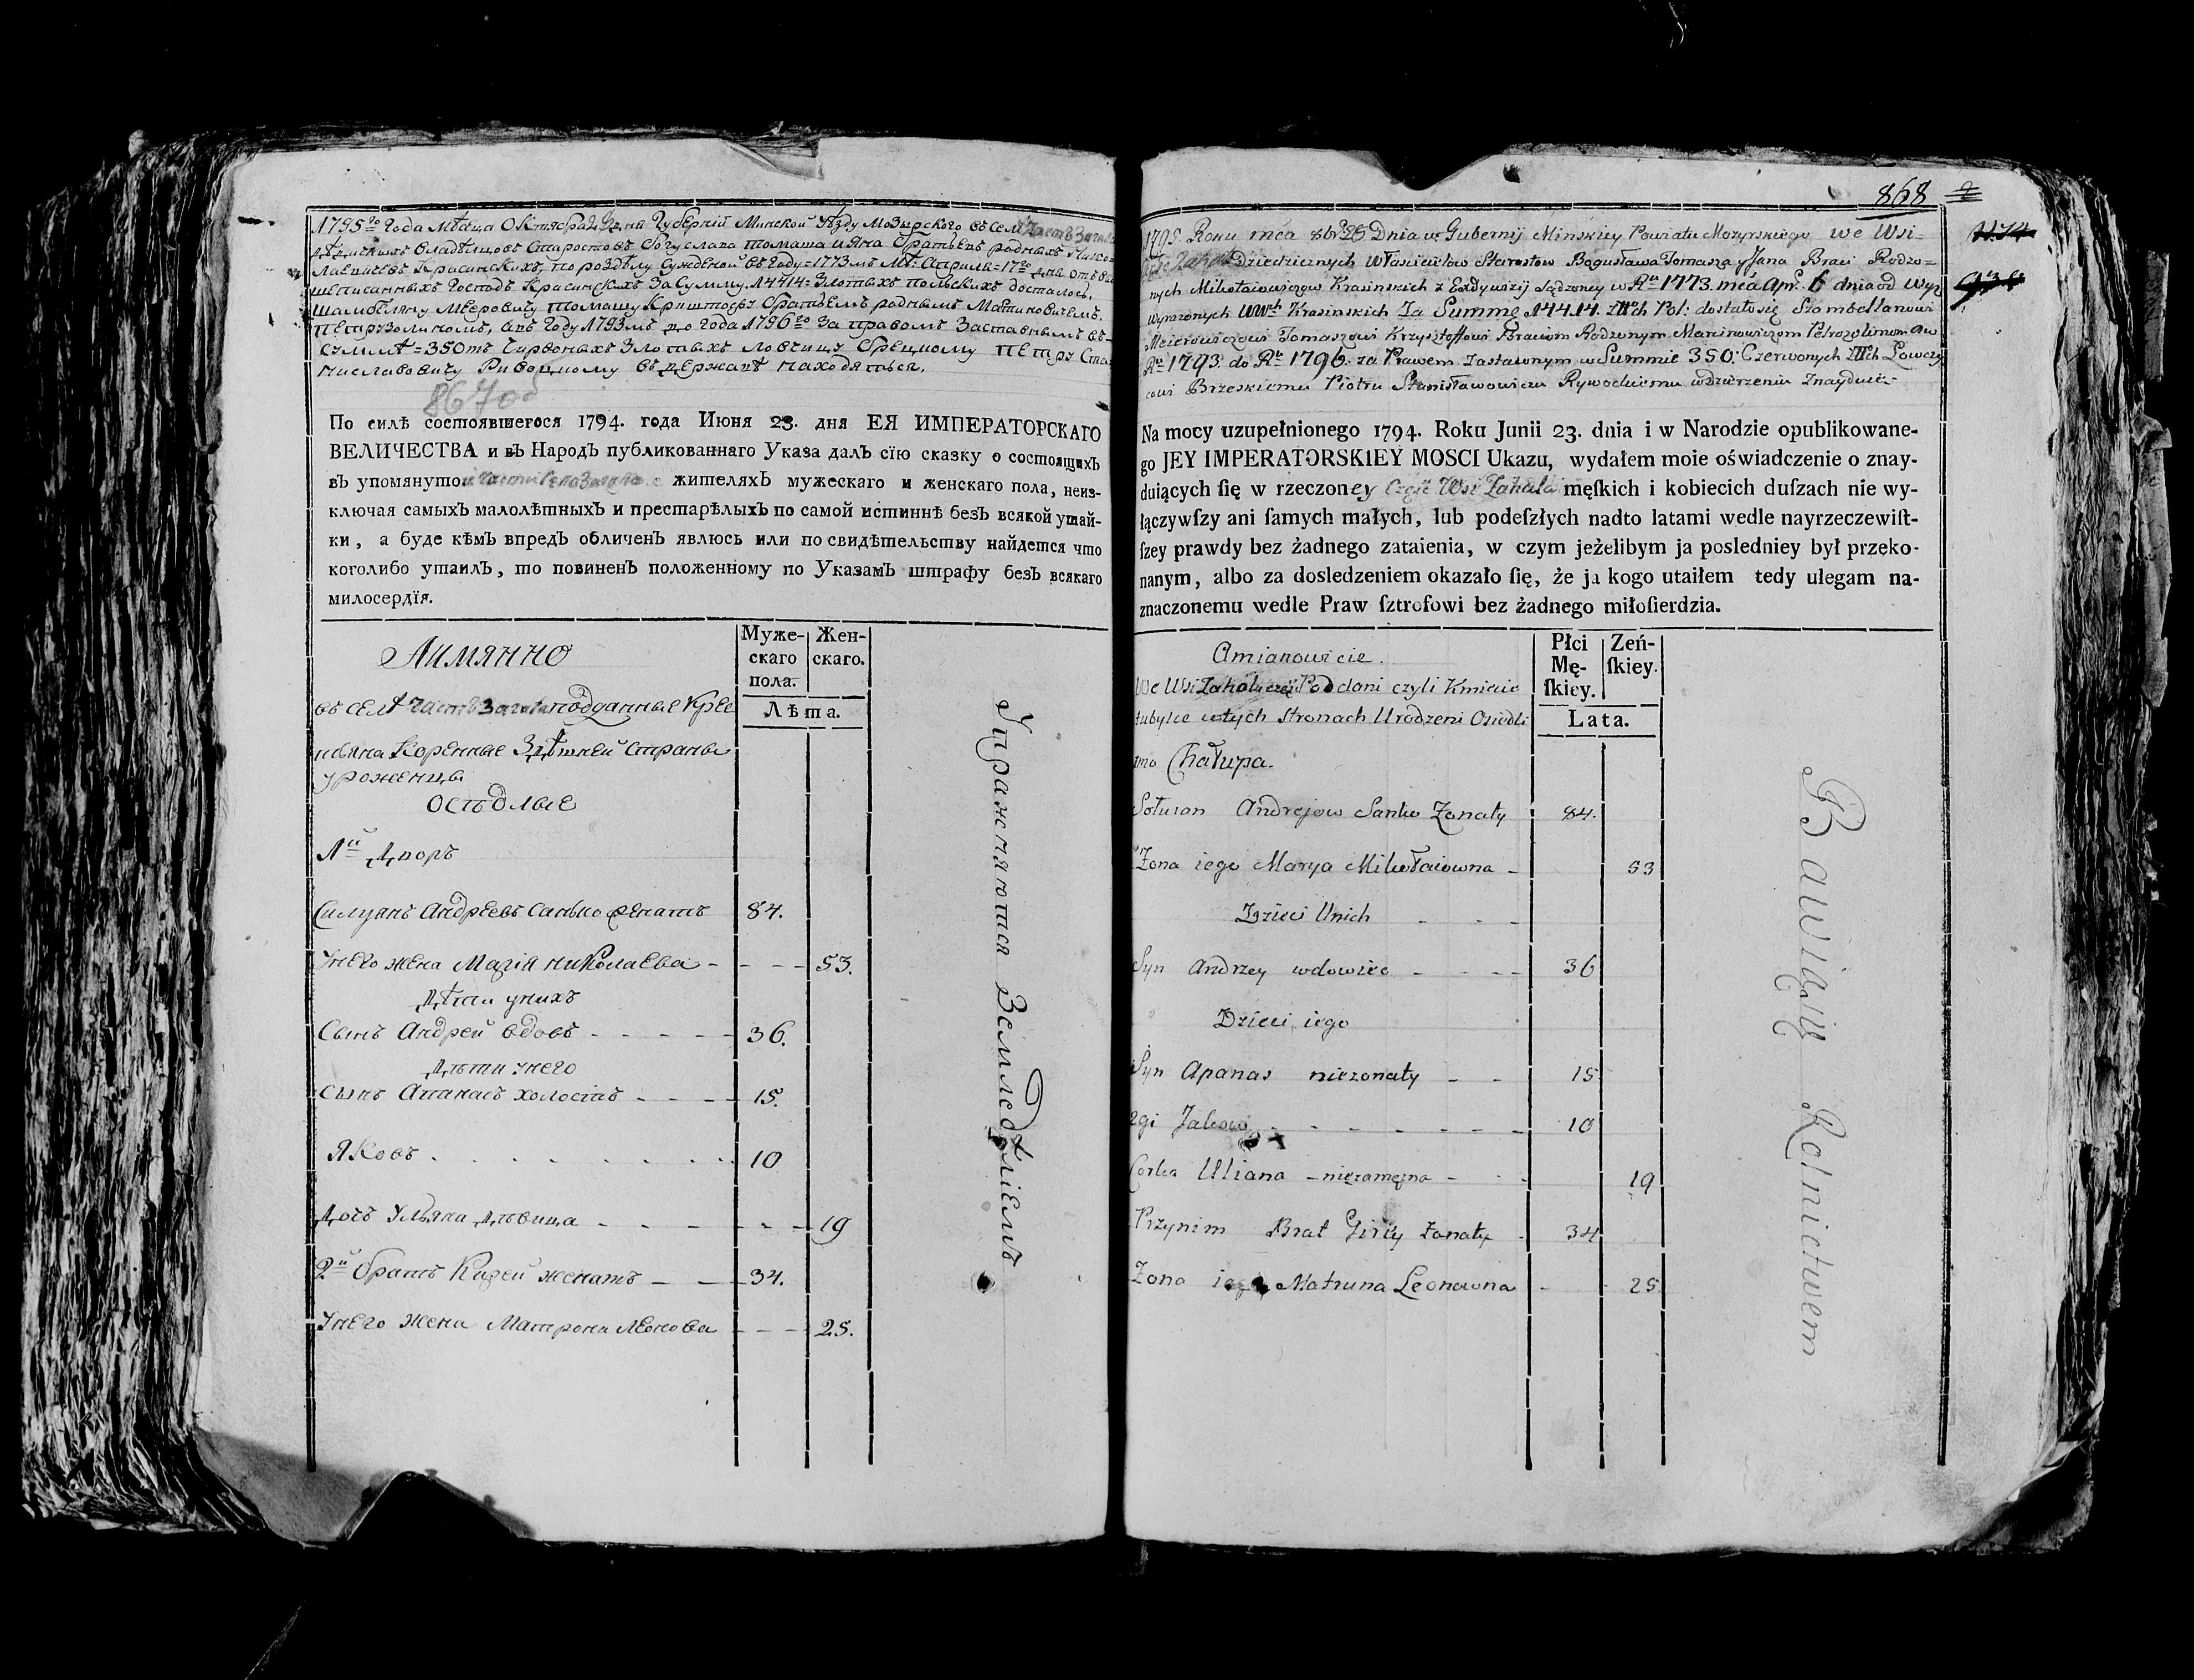 1795го года мѣсяца Октября дня Губернїи Минской уѣзду Мозырского въ селѣ Часть Загала
дѣдичныхъ владѣльцовъ Старостовъ Богуслава Томаша и Яна братьевъ родныхъ Нико=
лаевичевъ Красинскихъ, по роздѣлу сужденой въ году=1773мъ мѣ: Априля=17го дня отъ вы
шеписанныхъ Господъ Красинскихъ за сумму 14414= Злотыхъ польскихъ досталось
Шамбеляну Меровичу Томашу Криштофу братьемъ роднымъ Мартиновичемъ
Петрузолиномъ, а въ году 1793мъ до года 1796го за правомъ заставнымъ въ
суммѣ=350тъ Червоныхъ Злотыхъ ловчицу Брецкому Петру Ста=
ниславовичу Ривоцкому въ держанѣ находяться.
867об
По силѣ состоявшегося 1794. года Июня 23. дня ЕЯ ИМПЕРАТОРСКАГО
ВЕЛИЧЕСТВА и въ Народъ публикованнаго Указа далъ сїю сказку о состоящихъ
въ упомянутой части села Загала жителяхъ мужескаго и женскаго пола, неиз-
ключая самыхъ малолѣтныхъ и престарѣлыхъ по самой истиннѣ безъ всякой утай-
ки, а буде кѣмъ впредъ обличенъ явлюсь или по свидѣтельству найдется что
коголибо утаилъ, то повиненъ положенному по Указамъ штрафу безъ всякаго
милосердїя.
Аимянно
Муже-
скаго
пола.
Жен-
скаго.
Лѣта.
въ селѣ Часть Загала подданные Крес
тьяна Коренные Здѣшней страны
уроженцы
осѣдлые
1й Дворъ
Силуянъ Андреевъ Санько женатъ 84.
У него жена Марїя Николаева - - - - 53.
Дѣти у нихъ
Сынъ Андрей вдовъ - - - - - 36.
Дѣти у него
Сынъ Апанасъ холостъ - - - - 15.
Яковъ . . . . . . . . 10
Дочь Ульяна дѣвица - - - - - - - 19
2й братъ Кирей женатъ - - - 34.
У него жена Матрона Леонова - - - 25.
Упражняются Земледѣлїемъ
868
1795. Roku mca 8br 26 Dnia w Gubernij Minskiey Powiatu Mozyrskiego we Wsi
część Zahala Dziedzicznych Własciciełow Starostow Bogusława Tomasza y Jana Braci Rodzo=
nych Mikołaiowiczow Krasinskich z Exdywizij Sądzoney w Rku 1773 mca Apr. 6 dnia od Wyż
wyrażonych WWch Krasinskich Za Summę 14414. Złłch Pol: dostało się Szambellanowi
Meierowiczowi Tomaszowi Krzysztoffowi Braciom Rodzonym Marcinowiczom Petrozolinom a w
Rku 1793. do Rku 1796. za Prawem Zastawnym w Summie 350: Czerwonych Złłch Łowcz
cowi Brzeskiemu Piotru Stanisławowiczu Rywockiemu w dzierżeniu Znayduie
Na mocy uzupełnionego 1794. Roku Junii 23. dnia i w Narodzie opublikowane-
go JEY IMPERATORSKIEY MOSCI Ukazu, wydałem moie oświadczenie o znay-
duiących ſię w rzeczoney Część Wsi Zahala męſkich i kobiecich duſzach nie wy-
łączywſzy ani ſamych małych, lub podeſzłych nadto latami wedle nayrzeczewiſt-
ſzey prawdy bez żadnego zataienia, w czym jeżelibym ja posledniey był przeko-
nanym, albo za dosledzeniem okazało ſię, że ja kogo utaiłem tedy ulegam na-
znaczonemu wedle Praw ſztrofowi bez żadnego miłoſierdzia.
Amianowicie.
Płci
Mę-
ſkiey.
Zeń-
ſkiey.
Lata.
We Wsi Zahala część Poddani czyli Kmiecie
tubylce w tych stronach Urodzeni Osiedli
1mo Chałupa.
Sołuian Andrejow Sanko Zonaty 84.
Zona iego Marya Mikołaiowna - 53
Dzieci Unich - - -
Syn Andrzey wdowiec - - - - 36
Dzieci iego
Syn Apanas niezonaty - - 15
2gi Jakow - - - - - - - 10
Corka Uliana - niezamężna - - - 19
Przynim Brat Girey Zonaty - 34
Zona iego Matruna Leonowna - - 25
Bawiąią Rolnictwem